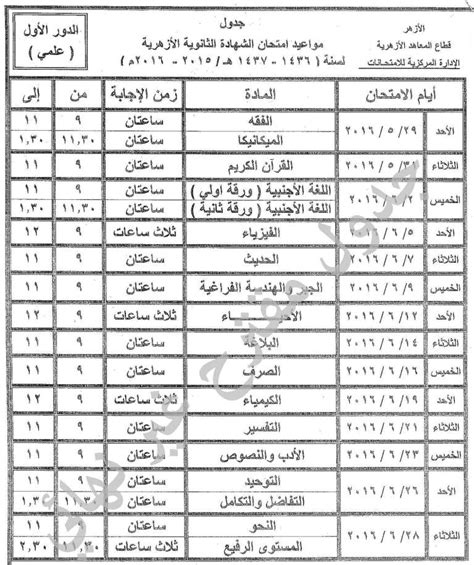 الأزهر
قطاع المعاهد الأزهرية
الإدارة المركزية للامتحانات
جدول
مواعيد امتحان الشهادة الثانوية الأزهرية
لسنة ( ١٤٣٦ - ١٤٣٧ هـ / ٢٠١٥ - ٢٠١٦م )
الدور الأول
( علمي )
أيام الامتحان المادة زمن الإجابة من إلى
الأحد ٢٩ / ٥ / ٢٠١٦ الفقه ساعتان ٩ ١١
الميكانيكا ساعتان ١١,٣٠ ١,٣٠
الثلاثاء ٣١ / ٥ / ٢٠١٦ القرآن الكريم ساعتان ٩ ١١
الخميس ٢ / ٦ / ٢٠١٦ اللغة الأجنبية ( ورقة اولي ) ساعتان ٩ ١١
اللغة الأجنبية ( ورقة ثانية ) ساعتان ١١,٣٠ ١,٣٠
الأحد ٥ / ٦ / ٢٠١٦ الفيزياء ثلاث ساعات ٩ ١٢
الثلاثاء ٧ / ٦ / ٢٠١٦ الحديث ساعتان ٩ ١١
الخميس ٩ / ٦ / ٢٠١٦ الجبر والهندسة الفراغية ساعتان ٩ ١١
الأحد ١٢ / ٦ / ٢٠١٦ الأحيـــاء ثلاث ساعات ٩ ١٢
الثلاثاء ١٤ / ٦ / ٢٠١٦ البلاغة ساعتان ٩ ١١
الخميس ١٦ / ٦ / ٢٠١٦ الصرف ساعتان ٩ ١١
الأحد ١٩ / ٦ / ٢٠١٦ الكيمياء ثلاث ساعات ٩ ١٢
الثلاثاء ٢١ / ٦ / ٢٠١٦ التفسير ساعتان ٩ ١١
الخميس ٢٣ / ٦ / ٢٠١٦ الأدب والنصوص ساعتان ٩ ١١
الأحد ٢٦ / ٦ / ٢٠١٦ التوحيد ساعتان ٩ ١١
التفاضل والتكامل ساعتان ١١,٣٠ ١,٣٠
الثلاثاء ٢٨ / ٦ / ٢٠١٦ النحو ساعتان ٩ ١١
المستوى الرفيع ثلاث ساعات ١١,٣٠ ٢,٣٠
جدول مقترح غير نهائي